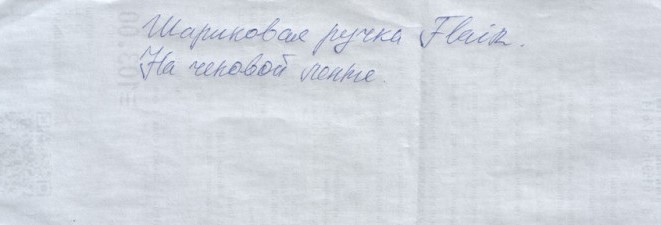 Шариковая ручка Flair.
На чековой ленте.